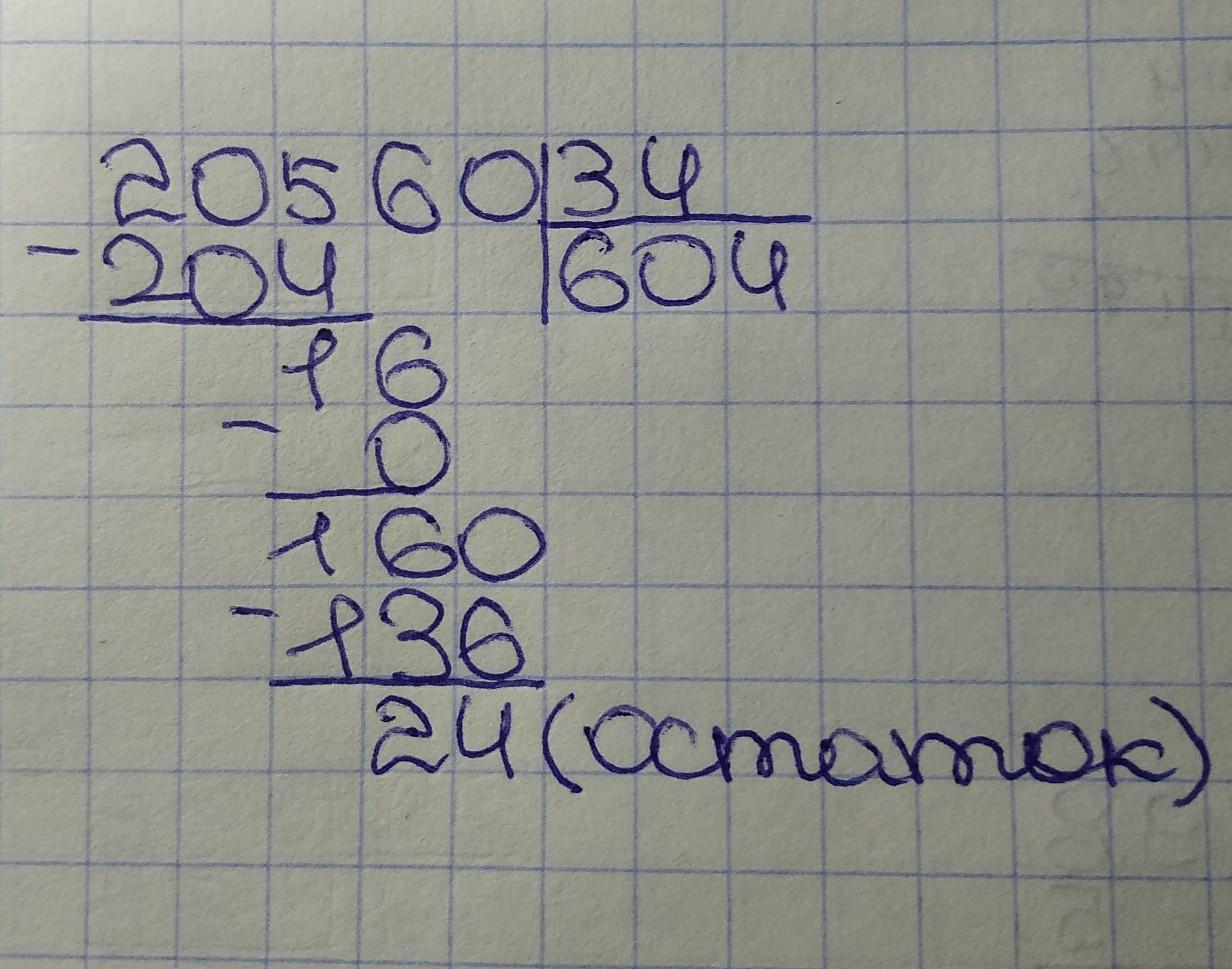 20560 34
- 204 604
16
- 0
160
- 136
24 (остаток)